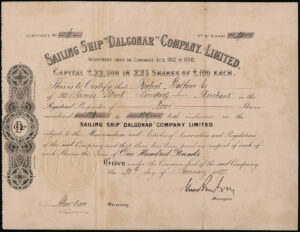 CERTIFICATE No
No OF SHARES
SAILING SHIP "DALGONAR" COMPANY, LIMITED.
INCORPORATED UNDER THE COMPANIES ACTS, 1862 TO 1890.
CAPITAL £22,300 IN 223 SHARES OF £100 EACH.
This is to Certify that Robert Balfour
of James Street Liverpool Merchant is the
Registered Proprietor of Four Shares
numbered to both inclusive in the
SAILING SHIP "DALGONAR" COMPANY LIMITED
subject to the Memorandum and Articles of Association and Regulations
of the said Company and that there has been paid in respect of each
of such Shares the Sum of One Hundred Pounds.
GIVEN under the Common Seal of the said Company
the day of January
Secretary.
Manager